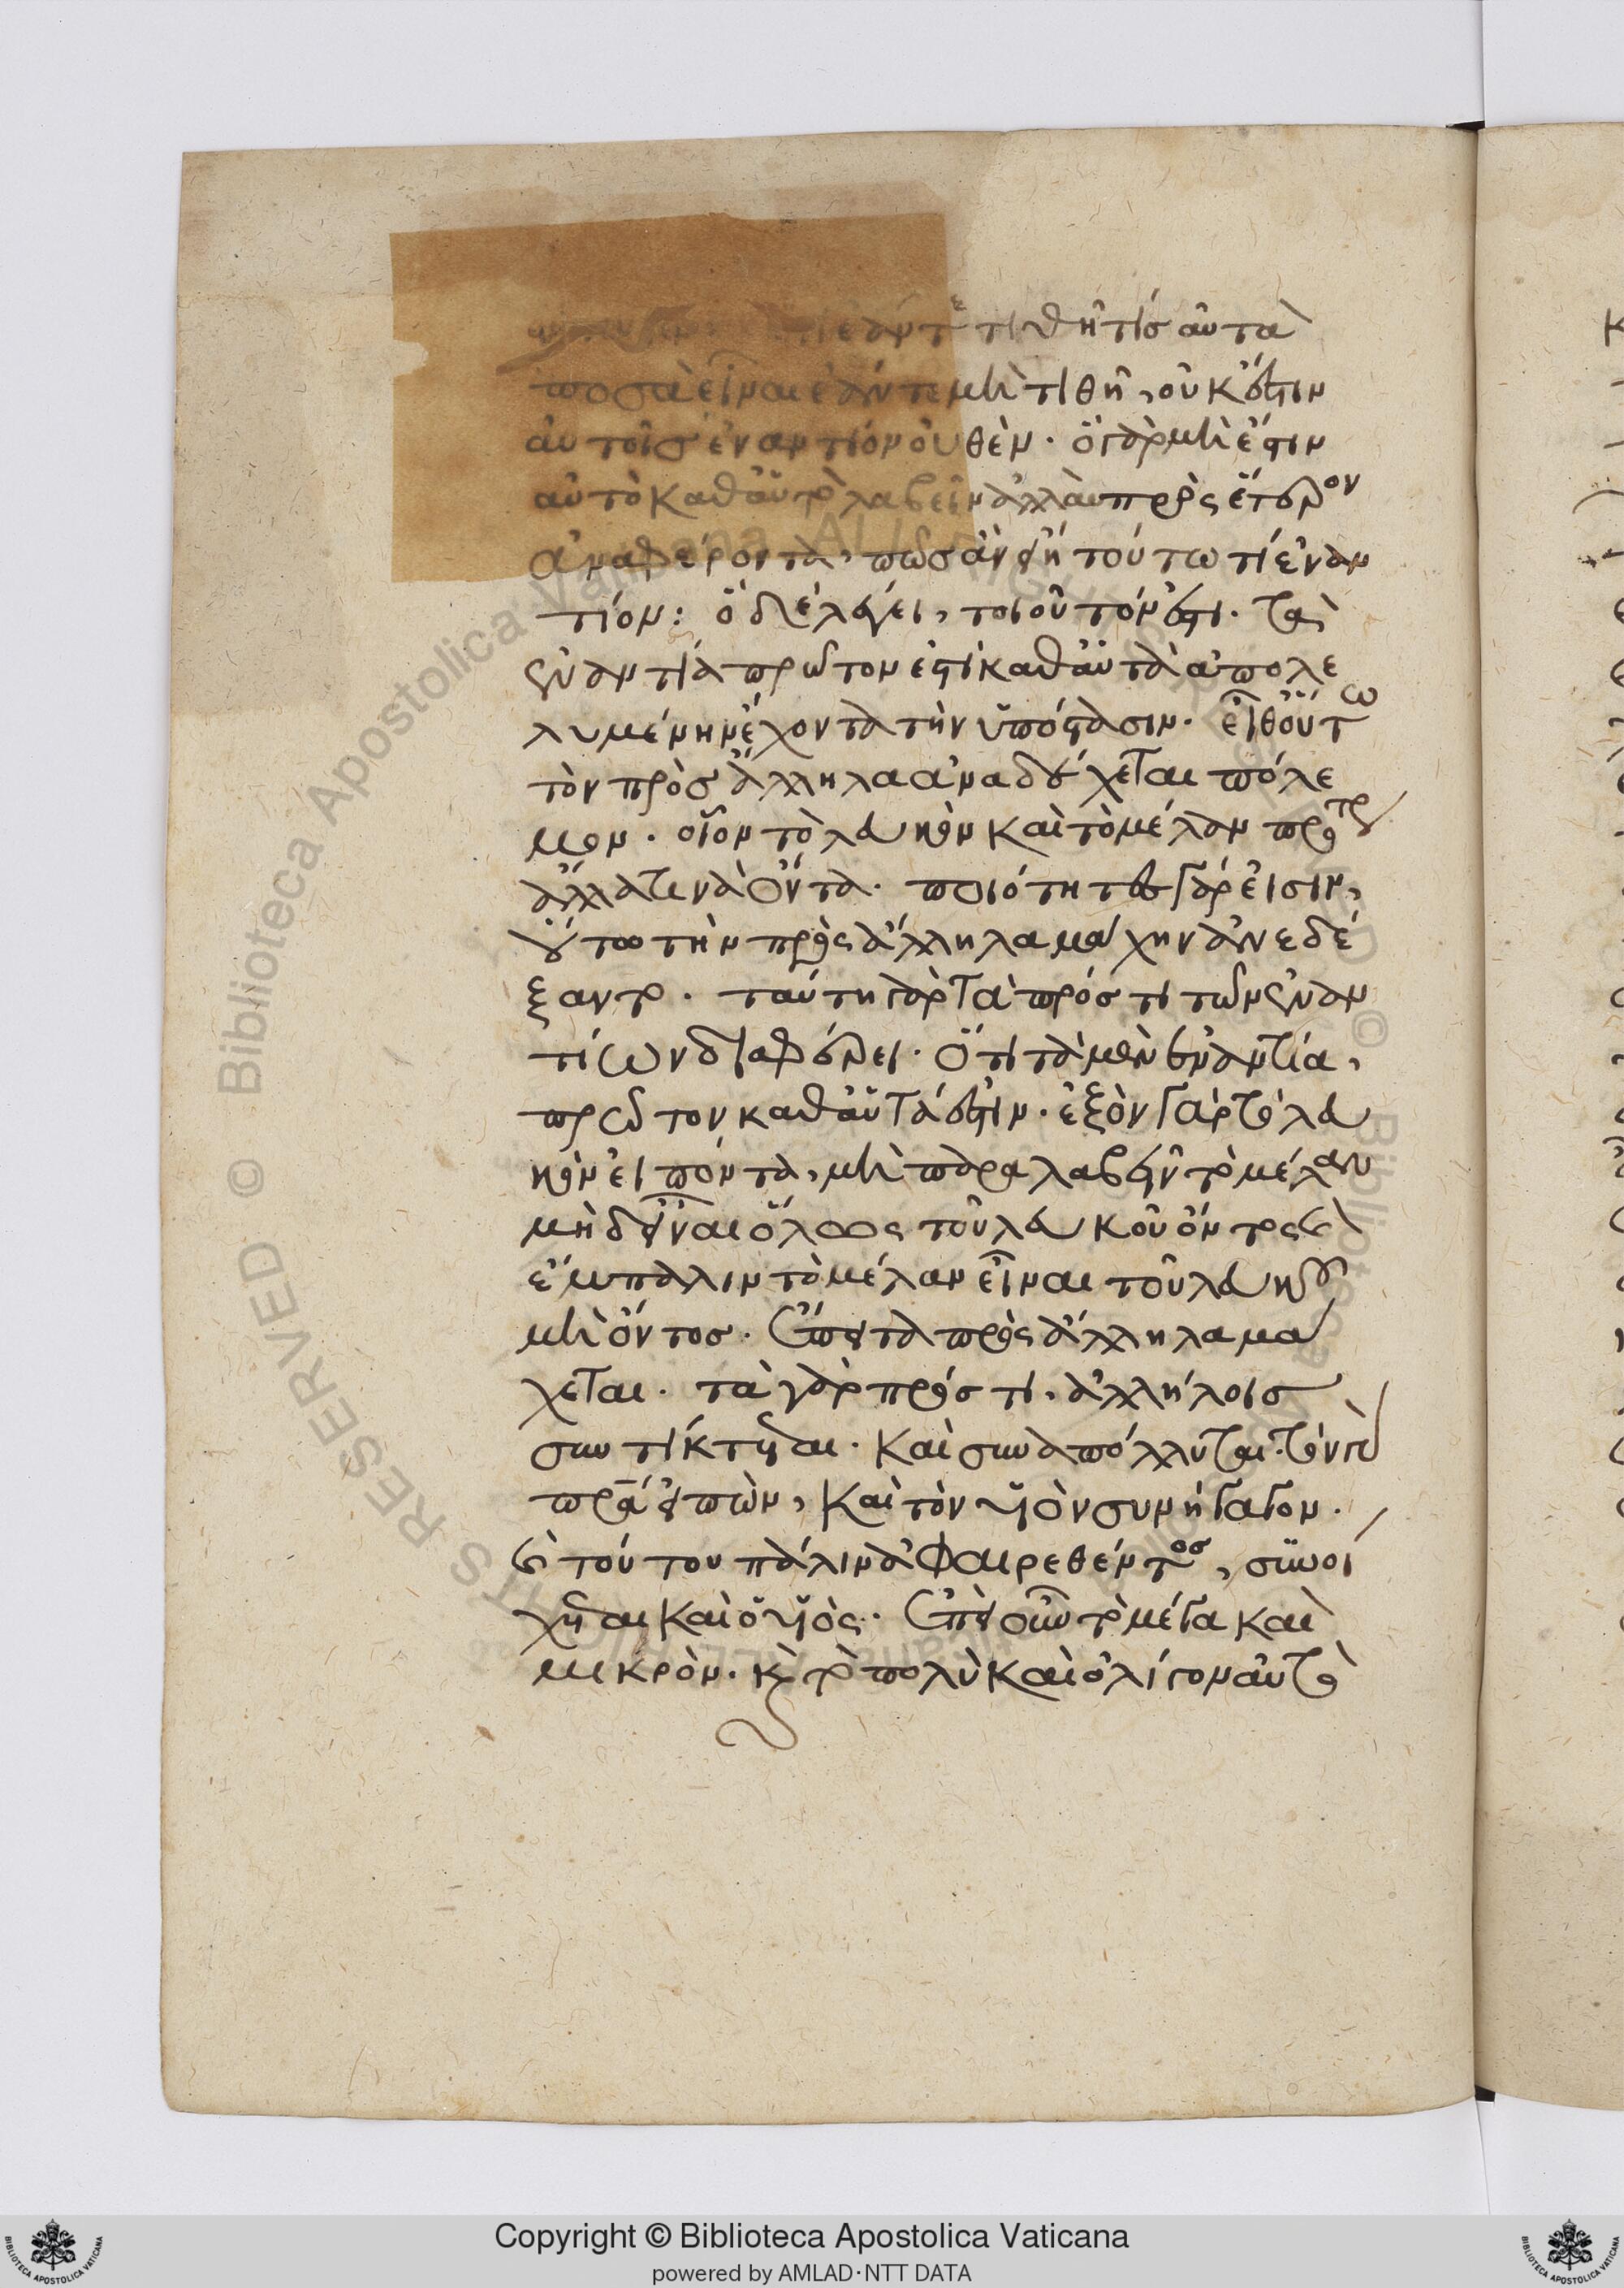 ἐάν τε τιθῆ τίσ αὐτὰ
ποσὰ εἶναι ἐάν τε μὴ τιθῆ, οὐκ ἔστιν
αὐτοῖσ ἐναντίον οὐθέν. ὃ γὰρ μὴ ἔστιν
αὐτὸ καθ' αὑτὸ λαβεῖν ἀλλὰ πρὸς ἕτερον
ἀναφέροντα, πῶσ ἂν εἴη τούτω τί ἐναν
τίον: ὃ δὲ λέγει, τοιοῦτόν ἐστι. τὰ
ἐναντία πρῶτον ἐστὶ καθ' αὑτὰ ἀπολε
λυμένην ἔχοντα τὴν ὑπόστασιν. εἶθ' οὕτω
τὸν πρὸσ ἄλληλα ἀναδέχεται πόλε
μον. οἷον τὸ λευκὸν καὶ τὸ μέλαν πρότερον
ἄλλα τινὰ ὄντα. ποιότητες γάρ εἰσιν,
οὕτω τὴν πρὸς ἄλληλα μάχην ἀνεδέ
ξαντο. ταύτη γὰρ τὰ πρόσ τι τῶν ἐναν
τίων διαφέρει. ὅτι τὰ μὲν ἐναντία,
πρῶτον καθ' αὑτά ἐστιν. ἐξὸν γὰρ τὸ λευ
κὸν εἰπόντα, μὴ παραλαβεῖν τὸ μέλαν
μηδ' εἶναι ὅλως τοῦ λευκοῦ ὄντος καὶ
ἔμπαλιν τὸ μέλαν εἶναι τοῦ λευκοῦ
μὴ ὄντοσ. ἔπειτα πρὸς ἄλληλα μά
χεται. τὰ γὰρ πρόσ τι, ἀλλήλοισ
συντίκτεται. καὶ συναπόλλυται. τὸν γὰρ
πρα εἰπὼν, καὶ τὸν υἱὸν συνήγαγον.
καὶ τούτου πάλιν ἀφαιρεθέντοσ, συνοί
χεται καὶ ὁ υἱὸς. ἐπεὶ οὖν τὸ μέγα καὶ
μικρὸν. καὶ τὸ πολὺ καὶ ὀλίγον αὐτὸ